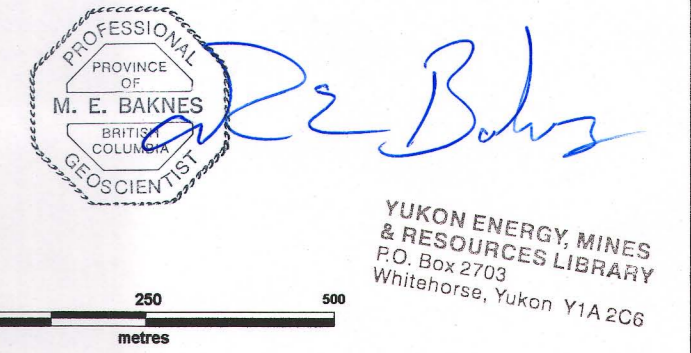 PROFESSIONAL
PROVINCE
OF
M. E. BAKNES
BRITISH
COLUMBIA
GEOSCIENTIST
YUKON ENERGY, MINES
& RESOURCES LIBRARY
P.O. Box 2703
Whitehorse, Yukon Y1A 2C6
250 500
metres